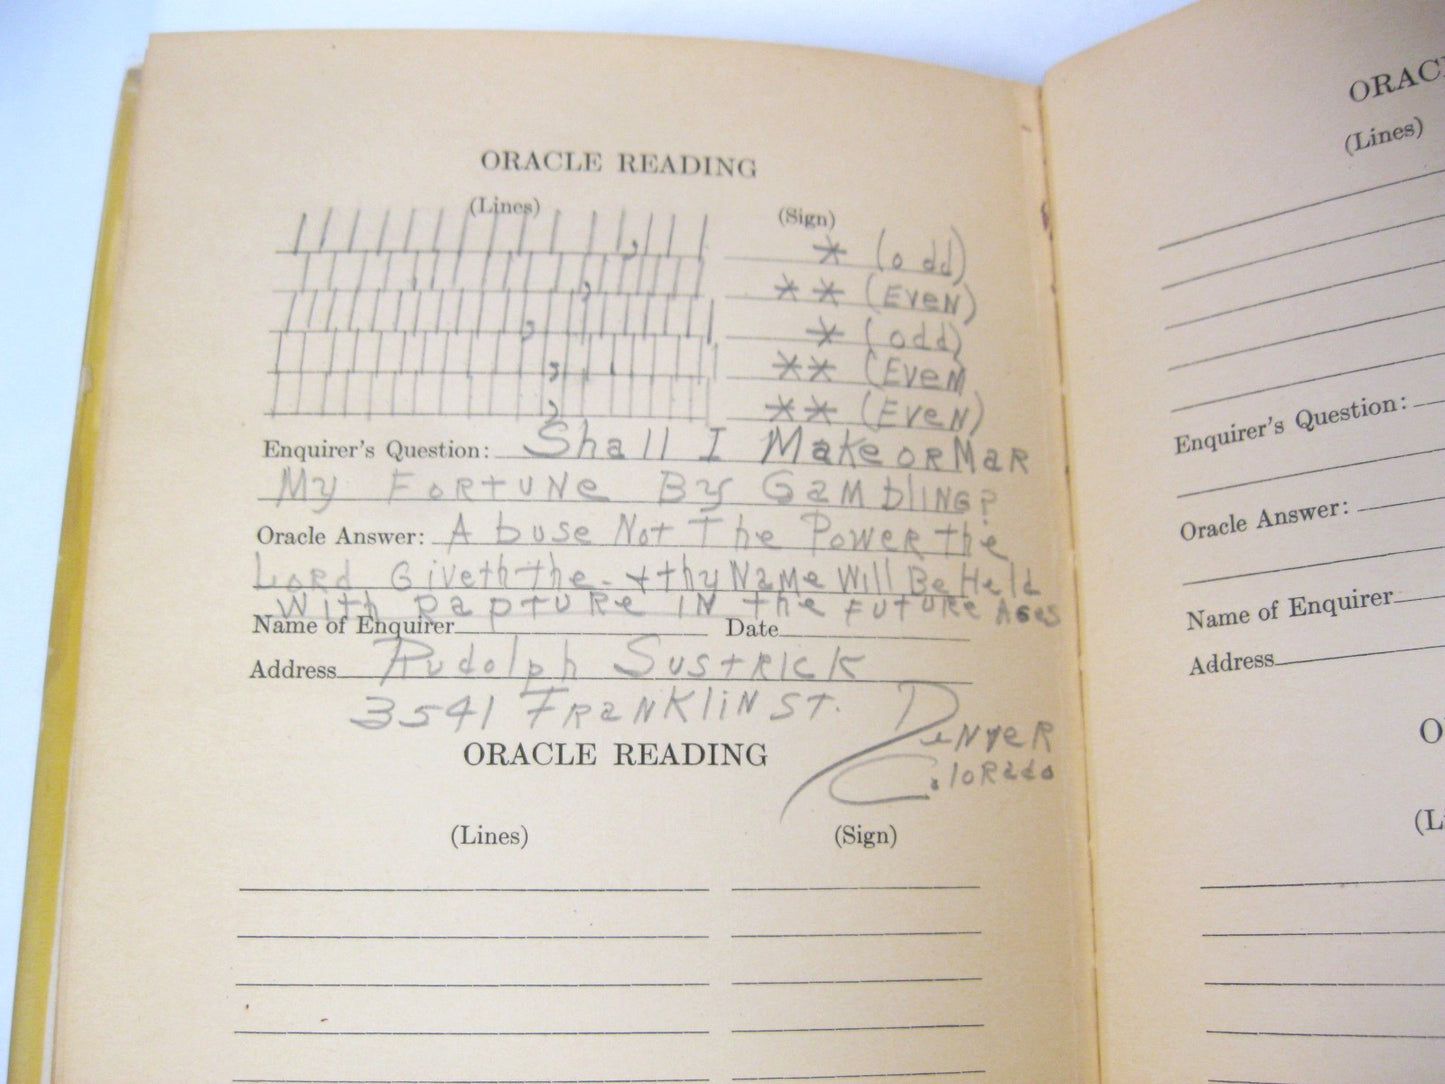 ORACLE READING
(Lines) (Sign)
* (odd)
** (EveN)
* (odd)
** (EveN
** (EveN)
Enquirer's Question: Shall I Make oR MaR
My FoRtuNe By GaMbliNg?
Oracle Answer: Abuse Not The PoweR the
LoRd Giveth the - + thy NaMe Will Be Held
With RaptuRe iN the FutuRe Ages
Name of Enquirer Date
Address Rudolph SustRick
3541 FRaNkliN St. DeNveR
ColoRado
ORACLE READING
(Lines) (Sign)
ORAC
(Lines)
Enquirer's Question:
Oracle Answer:
Name of Enquirer
Address
O
(L